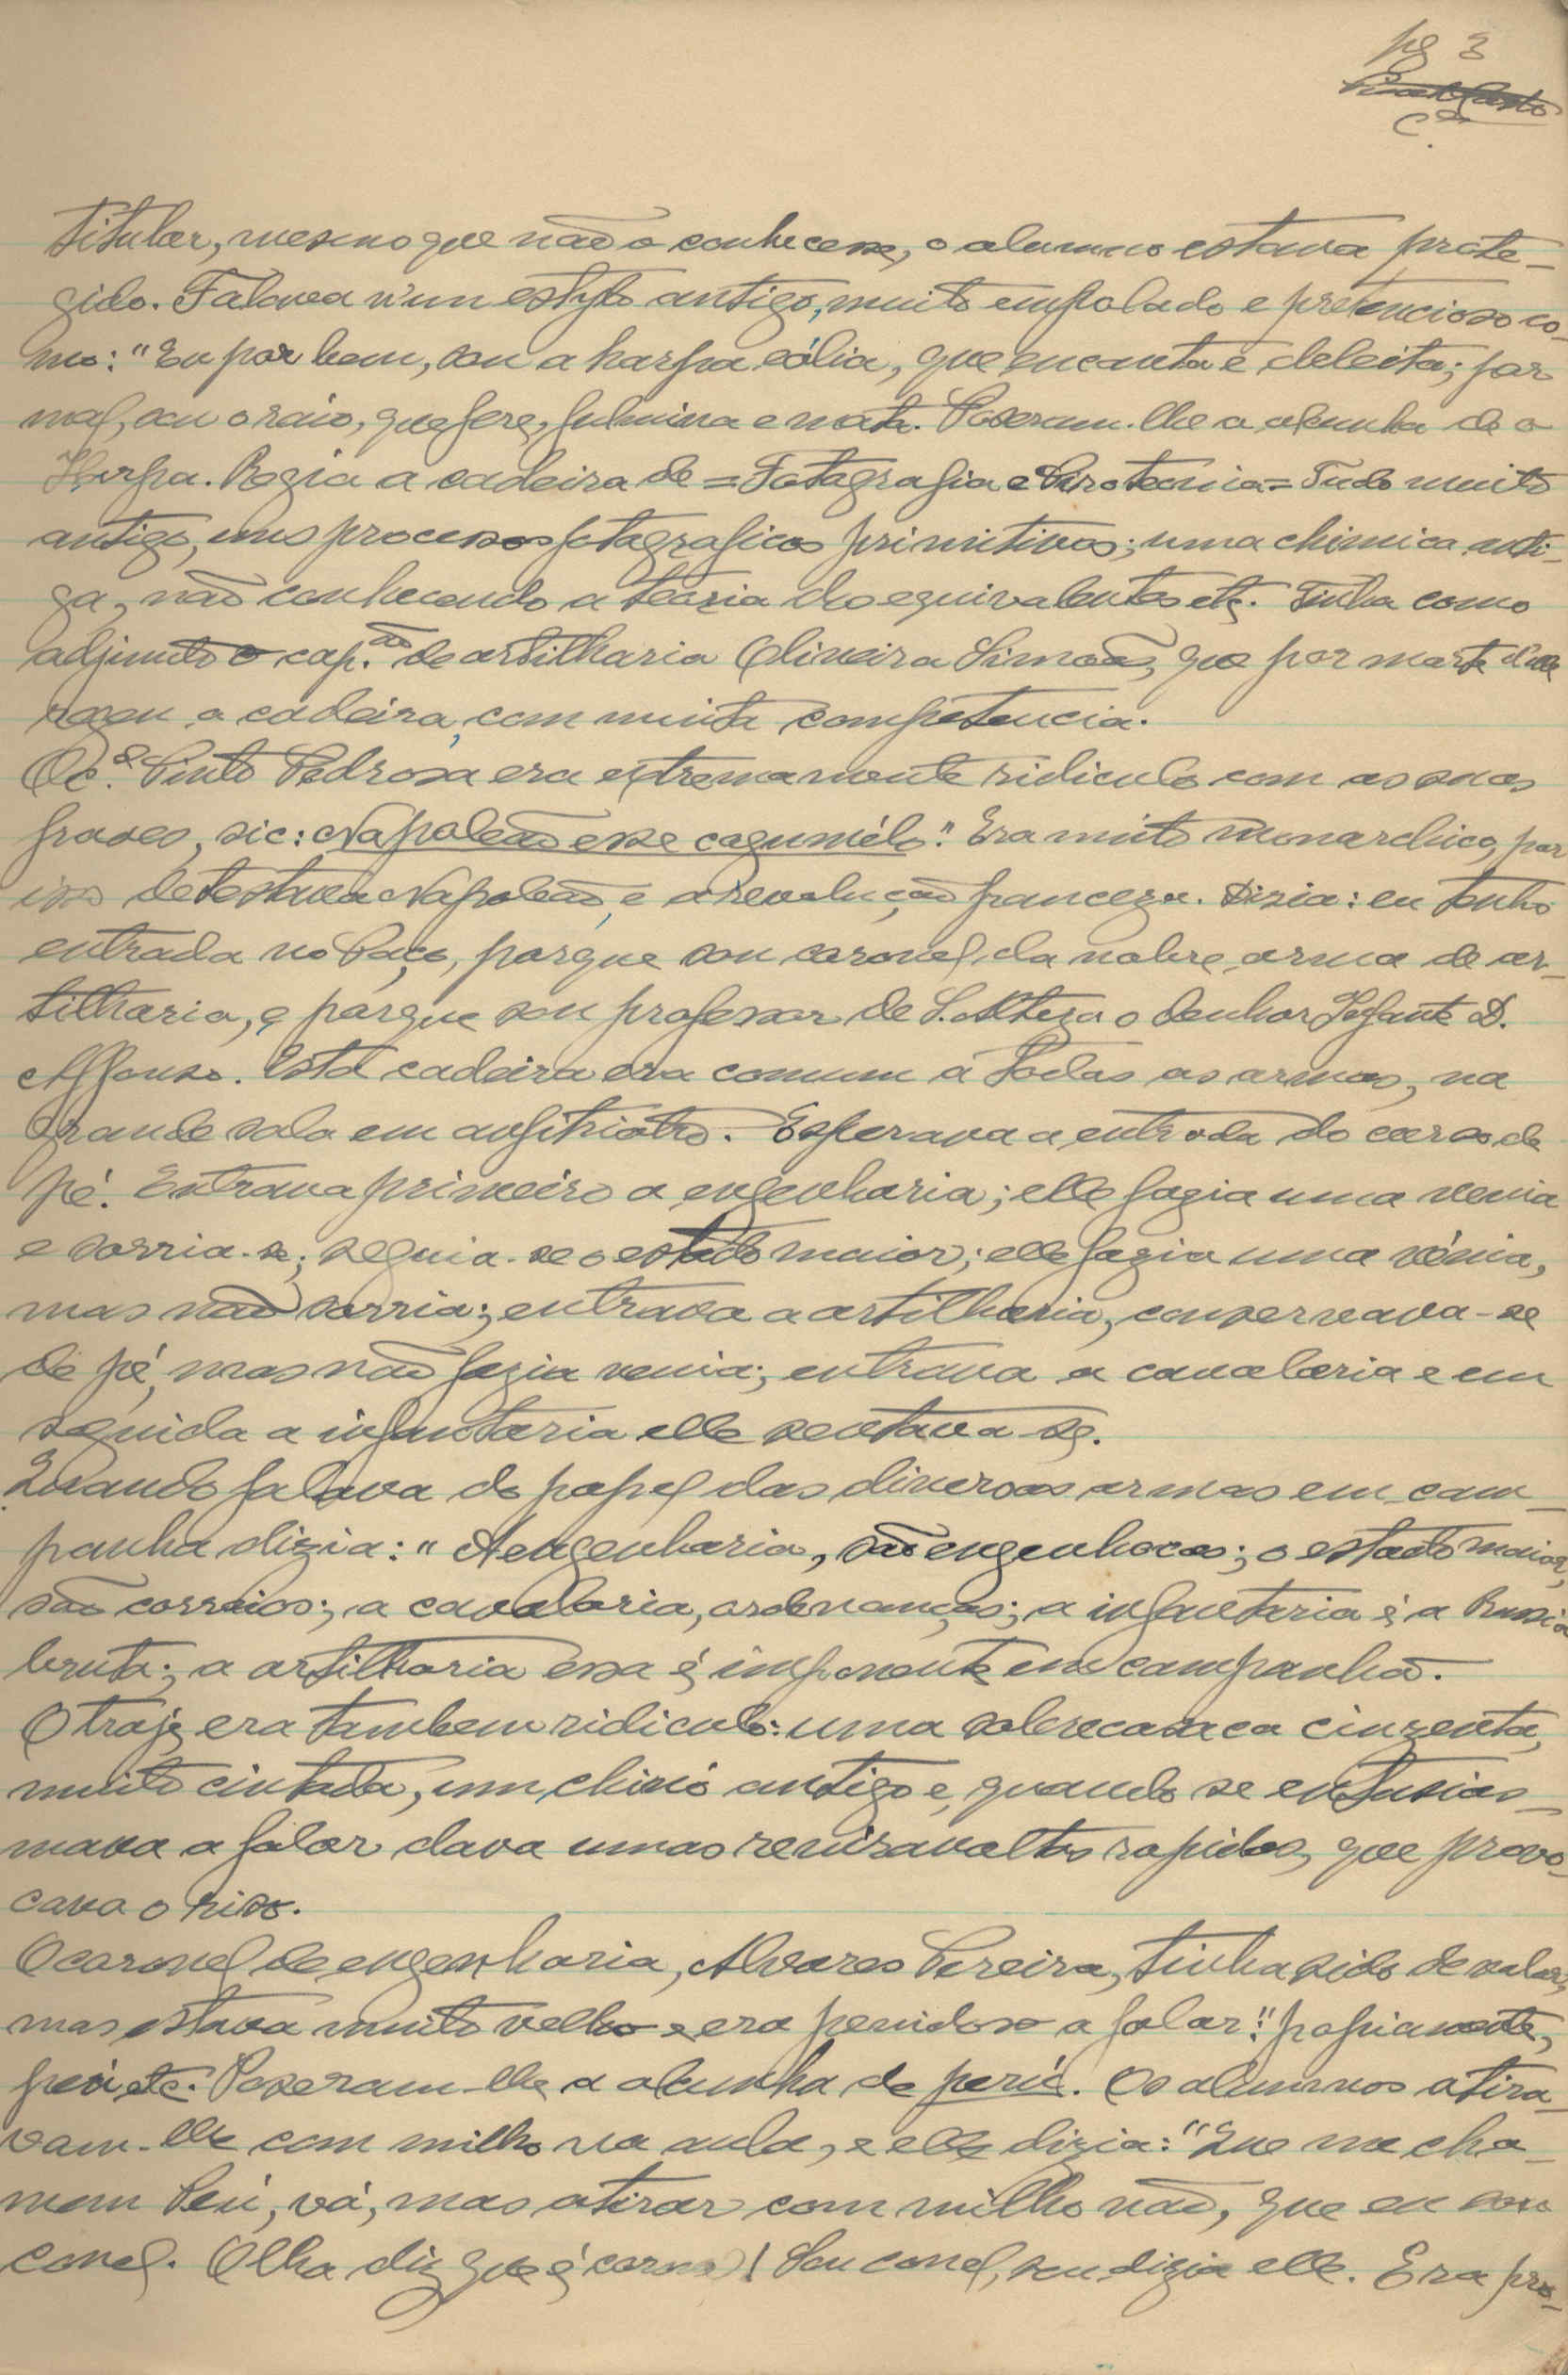 pg 3
C.el
titular, mesmo que não o conhecesse, o alumno estava prote-
gido. Falava n'um estylo antigo, muito empolado e pretencioso co-
mo: "Eu por bem, sou a harpa eólia, que encanta e deleita; por
mal, sou o raio, que fere, fulmina e mata. Poseram-lhe a alcunha de o
Harpa. Regia a cadeira de = Fotografia e Pirotecnia = Tudo muito
antigo, uns processos fotograficos primitivos; uma chimica anti-
ga, não conhecendo a teoria dos equivalentes etc. Tinha como
adjunto o cap.ão de artilharia Oliveira Simões, que por morte d'elle
regeu a cadeira, com muita competencia.
O c.el Pinto Pedrosa era extremamente ridiculo com as suas
frases, sic: Napoleão esse cogumélo". Era muito monarchico, por
isso detestava Napoleão, e a revolução franceza. Dizia: eu tenho
entrada no Paço, porque sou coronel da nobre arma de ar-
tilharia, e porque sou professor de S. Alteza o Senhor Infante D.
Affonso. Esta cadeira era comum a todas as armas, na
grande sala em anfitriatro. Esperava a entrada do curso de
pé. Entrava primeiro a engenharia; elle fazia uma venia
e sorria-se; seguia-se o estado maior; elle fazia uma vénia,
mas não sorria; entrava a artilharia, conservava-se
de pé, mas não fazia venia; entrava a cavalaria e em
seguida a infantaria elle sentava-se.
Quando falava do papel das diversas armas em cam-
panha dizia: "A engenharia, são engenhocas; o estado maior,
são correios; a cavalaria, ordenanças; a infantaria é a Russia
bruta; a artilharia essa é imponente em campanha.
O traje era tambem ridiculo: uma sobrecasaca cinzenta,
muito cintada, um chinó antigo e, quando se entusias-
mava a falar dava umas reviravoltas rapidas, que provo-
cava o riso.
O coronel de engenharia, Alvares Pereira, tinha sido de valor,
mas estava muito velho e era penidoso a falar: "papiamente,
peú etc. Poseram-lhe a alcunha de perú. Os alumnos atira-
vam-lhe com milho na aula, e elle dizia: "Que me cha-
mem Peú, vá, mas atirar com milho não, que eu sou
conel. Olha diz que é corno! Sou conel, sou dizia elle. Era pro-